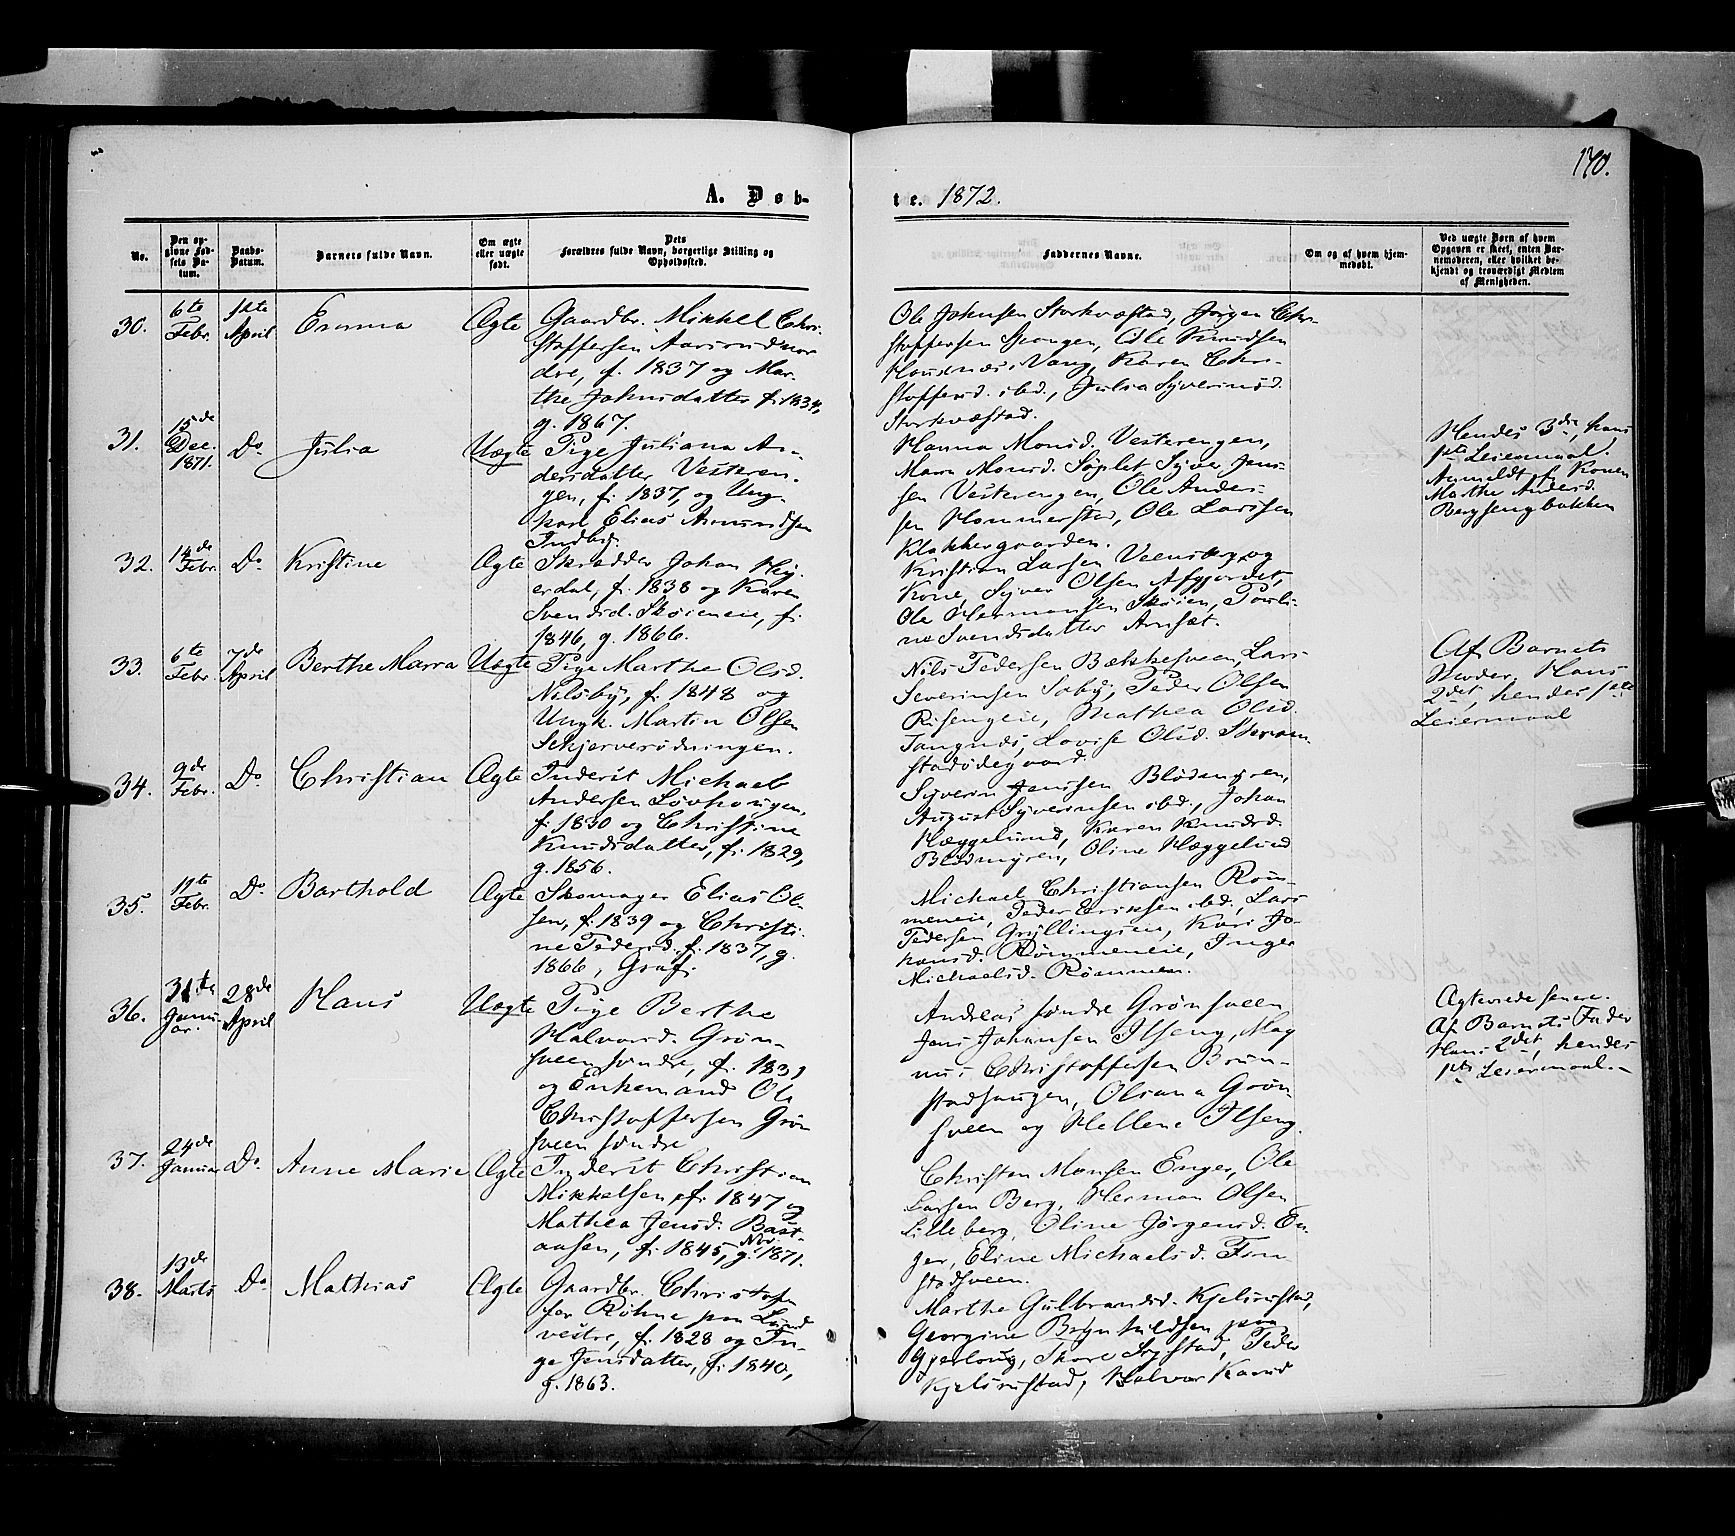 170.
A. Døb-
te. 1872.
No.
Den op-
givne Fød-
sels Da-
tum.
Daabs-
Datum.
Barnets fulde Navn.
Om ægte
eller uægte
født.
Dets
Forældres fulde Navn, borgerlige Stilling og
Opholdssted.
Faddernes Navne.
Om og af hvem hjem-
medøbt.
Ved uægte Børn af hvem
Opgaven er skeet, enten Bar-
nemoderen, eller hvilket be-
kjendt og troværdigt Medlem
af Menigheden.
30.
6te
Febr.
1ste
April
Emma
Ægte
Gaardbr. Mikkel Chri-
stoffersen Aasrud nor
dre, f. 1837 og Mar-
the Johnsdatter f. 1834,
g. 1867.
Ole Johnsen Storkvæstad, Jørgen Chr-
stoffersen Spangen, Ole Knudsen
i Vang, Karen Chri-
stoffersd. ibd., Julia Syverinsd.
Storkvæstad.
31.
15de
Dec.
1871.
Do
Julia
Uægte
Pige Juliana An-
dersdatter Vesteren-
gen, f. 1837, og Ung-
karl Elias Amundsen
Indby.
Hanna Monsd. Vesterengen,
Maren Monsd. Søplet, Syver Jen-
sen Vesterengen, Ole Ander-
sen Hommerstad, Ole Larsen
Klokkergaarden.
Hendes 3die, hans
1ste Leiermaal.
Anmeldt af Konen
Mathe Andersd.
Bergsengbakken
32.
14de
Febr.
Do
Kristine
Ægte
Skrædder Johan Hey-
erdal, f. 1838 og Karen
Svendsd. Skøieneie, f.
1846, g. 1866.
Kristian Larsen Veensberg og
Kone, Syver Olsen Asfgjordet,
Ole Hermansen Skøien, Pouli-
ne Svendsdatter Arnset.
33.
6te
Febr.
7de
April
Berthe Marra
Uægte
Pige Marthe Olsd.
Nilsby, f. 1848 og
Ungk. Martin Olsen
Skjerverødningen.
Nils Pedersen Bækkesveen, Lars
Severinsen Saby, Peder Olsen
Risengeie, Mathea Olsd.
Tangnes, Lovise Olsd. Skram-
stadødegaard.
Af Barnets
Moder. Hans
2det, hendes 1ste
Leiermaal
34.
9de
Febr.
Do
Christian
Ægte
Inderst Michael
Andersen Løvhougen,
f. 1830 og Christine
Knudsdatter, f. 1829,
g. 1856.
Syverin Jensen Blødmyren,
August Syverinsen ibd., Johan
Hæggelund, Karen Knudsd.
Blødmyren, Oline Hæggelund
35.
11te
Febr.
Do
Barthold
Ægte
Skomager Elias Ol-
sen, f. 1839 og Christi-
ne Pedersd. f. 1837, g.
1866, Graf.
Michael Christiansen Røm-
meneie, Peder Eriksen ibd., Lars
Pedersen Gryllingseie, Kari Jo-
hansd. Rømmeneie, Inger
Michaelsd. Rømmen.
36.
31te
Janu-
ar.
28de
April
Hans
Uægte
Pige Berthe
Halvorsd. Grøn-
sveen søndre, f. 1831
og Enkemand Ole
Christoffersen Grøn
sveen søndre
Andreas søndre Grønsveen
Jens Johansen Ilseng, Mag
nus Christoffersen Brun-
stadhaugen, Olsana Grøn
sveen og Hellene Ilseng.
Ægteviede senere.
Af Barnets Fader
Hans 2det, hendes
1ste Leiermaal.
37.
24de
Januar
Do.
Anne Marie
Ægte
Inderst Christian
Mikkelsen, f. 1847 og
Mathea Jensd. Bast-
aasen, f. 1845, g. Nov. 1871.
Christen Monsen Enger, Ole
Larsen Berg, Herman Olsen
Lilleberg, Oline Jørgensd. En-
ger, Eline Michaelsd. Fin
stadsveen.
38.
13de
Marts
Do
Mathias
Ægte
Gaardbr. Christof-
fer Røhne paa Lund
vestre, f. 1828 og In-
ge Jensdatter, f. 1840,
g. 1863.
Marthe Gulbrandsd. Kjelsrustad,
Georgine Brynhildsen paa
Gjerloug, Thore Sigstad, Peder
Kjelsrustad, Halvor Kaard